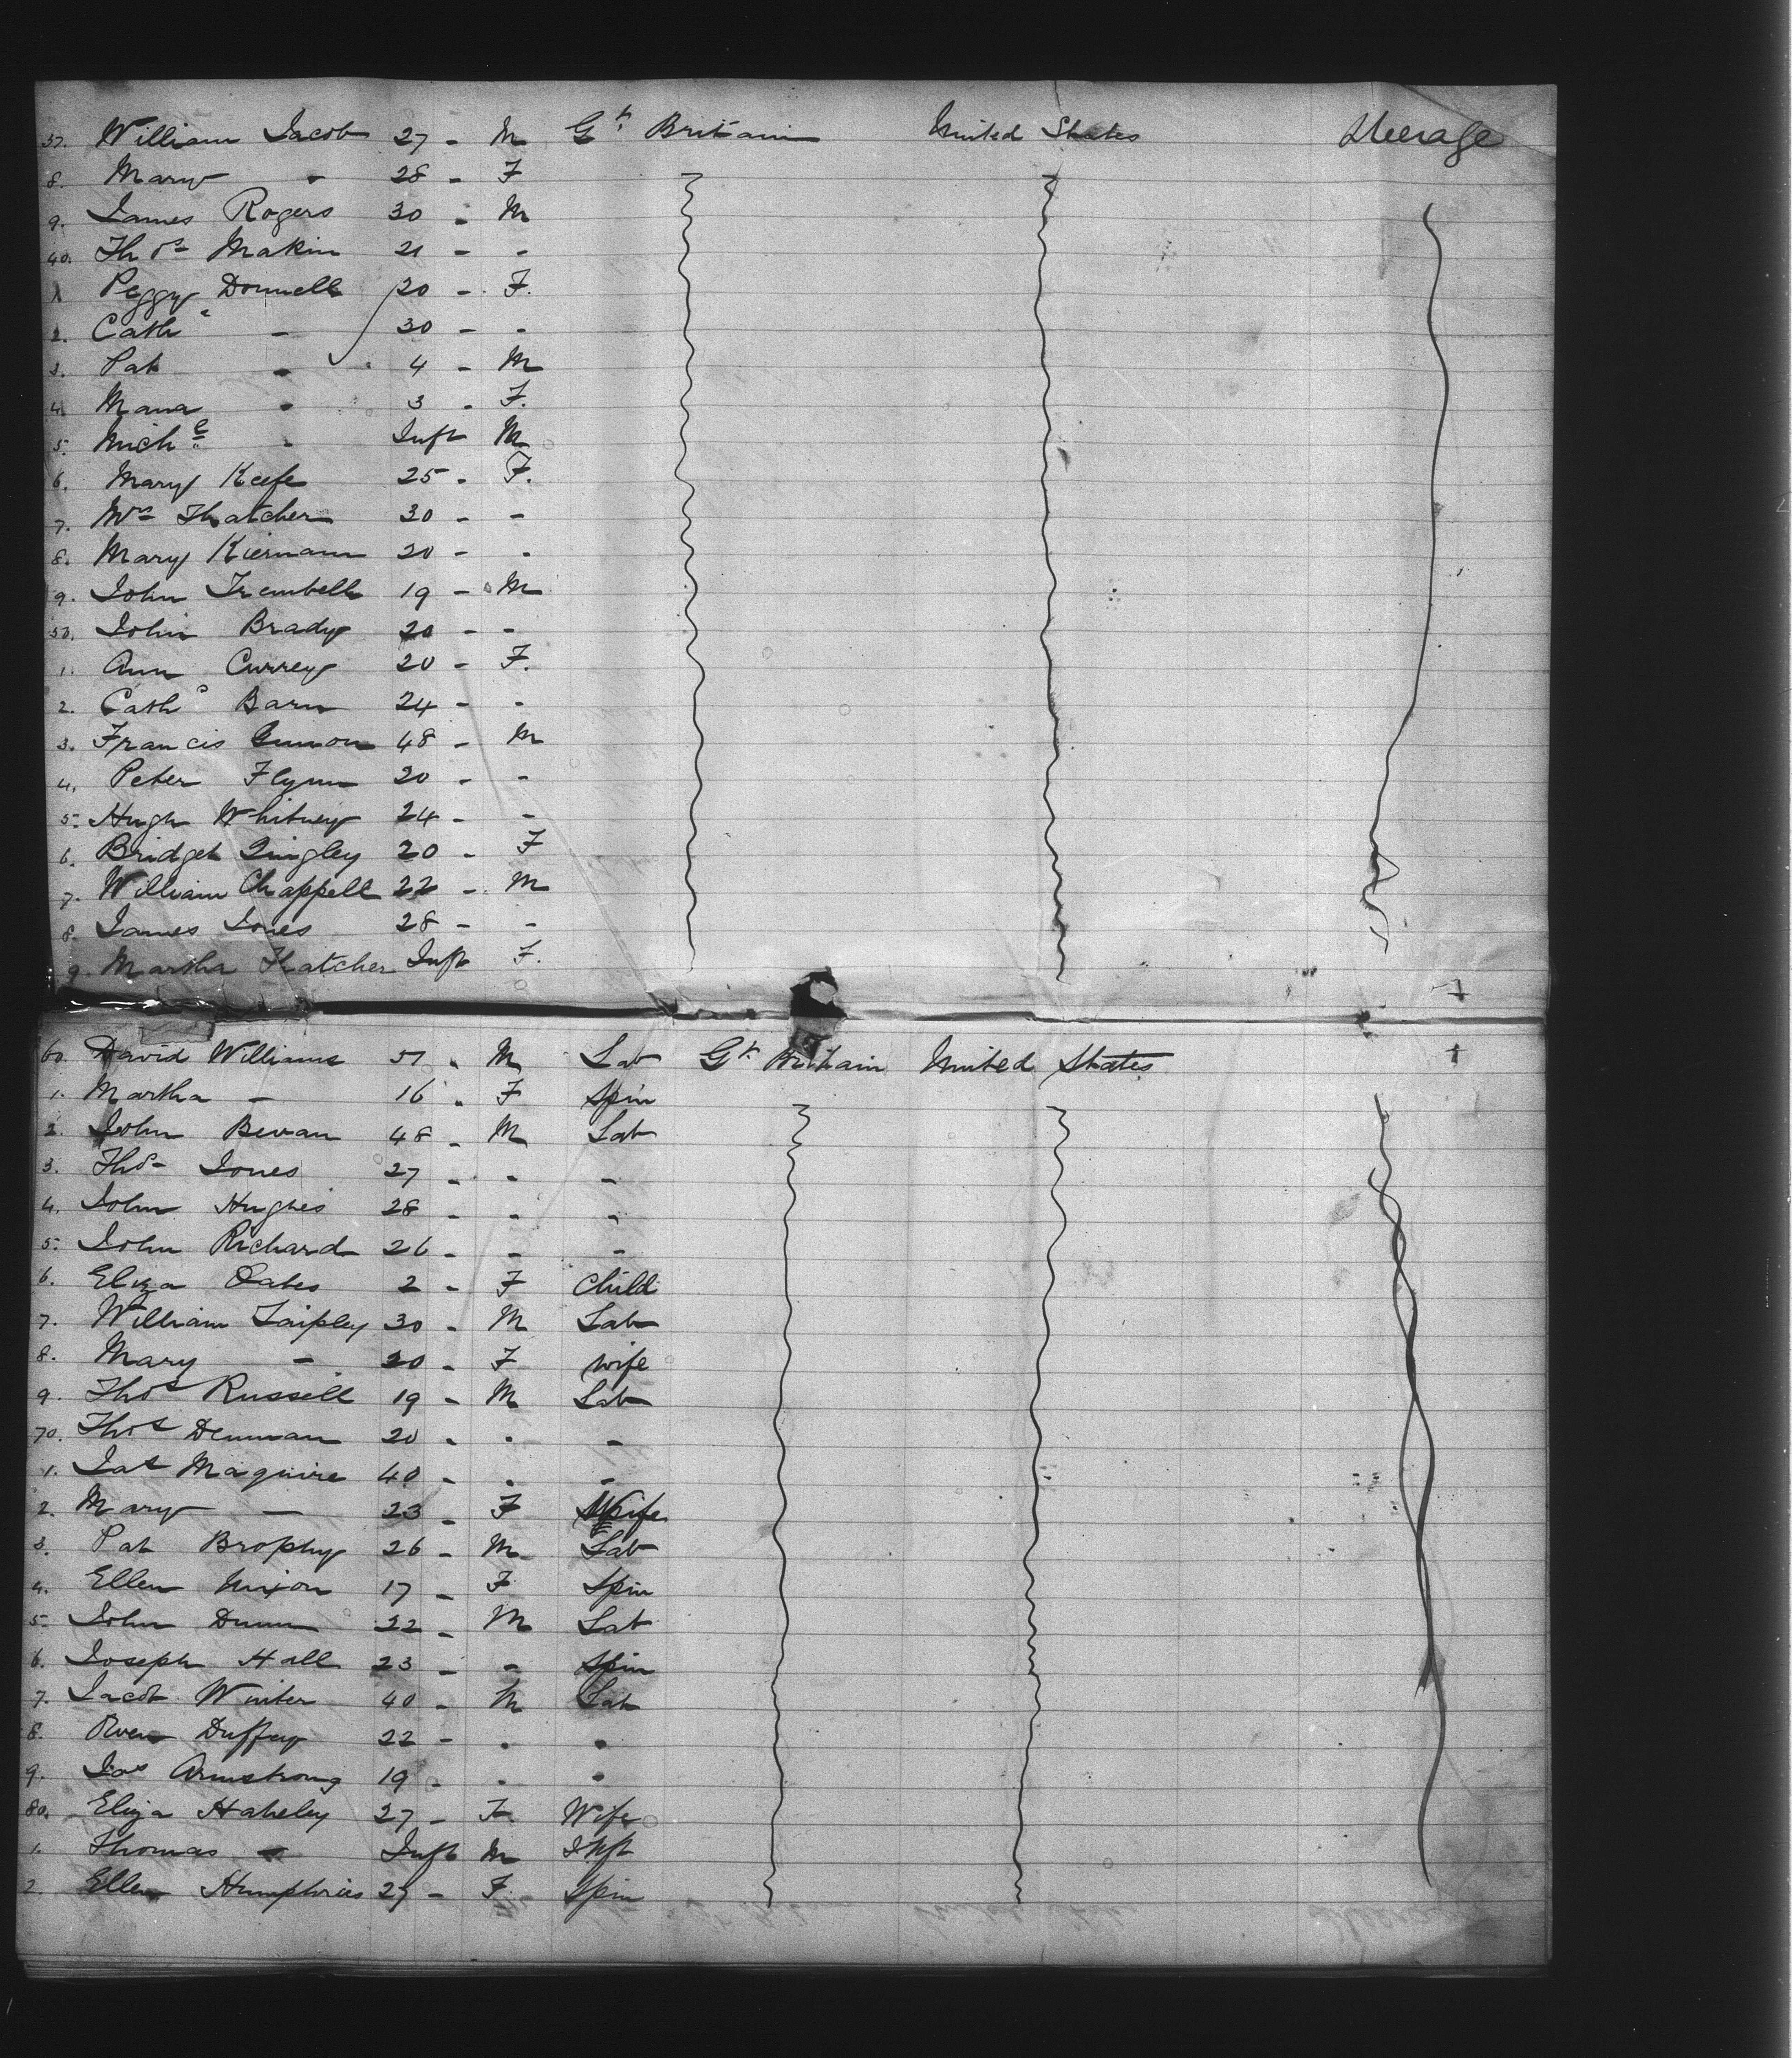 37. William Jacob 27 - M Gt. Britain United States Steerage
8. Mary - 28 - F
9. James Rogers 30 - M
40. Thos Makin 21 - -
1 Peggy Donnell 20 - F.
2. Cathe - 30 - -
3. Pat - 4 - M
4. Maria - 3 - F.
5. Michl - Inft M
6. Mary Keefe 25 - F.
7. Mrs Thatcher 30 - -
8. Mary Kiernann 20 - -
9. John Trembell 19 - M
50. John Brady 20 - -
1. Ann Currey 20 - F.
2. Cathe Barn 24 - -
3. Francis 48 - M
4. Peter Flynn 20 - -
5. Hugh Whitney 24 - -
6. Bridget Quigley 20 - F
7. William Chappell 22 - M
8. James Jones 28 - -
9. Martha Thatcher Inft F.
60. David Williams 51 - M Lab Gt. Britain United States
1. Martha - 16 - F Spin
2. John Bevan 48 - M Lab
3. Thos Jones 27 - - -
4. John Hughes 28 - - -
5. John Richard 26 - - -
6. Eliza Oates 2 - F Child
7. William Taipley 30 - M Lab
8. Mary - 20 - F wife
9. Thos Russell 19 - M Lab
70. Thos Denman 20 - - -
1. Jas Maguire 40 - - -
2. Mary - 23 - F Wife
3. Pat Brophy 26 - M Lab
4. Ellen Nixon 17 - F Spin
5. John Dunn 22 - M Lab
6. Joseph Hall 23 - - Spin
7. Jacob Winter 40 - M Lab
8. Owen Duffey 22 - - -
9. Jos Armstrong 19 - - -
80. Eliza Hateley 27 - F. Wife
1. Thomas - Inft M Inft
2. Ellen Humphries 27 - F. Spin